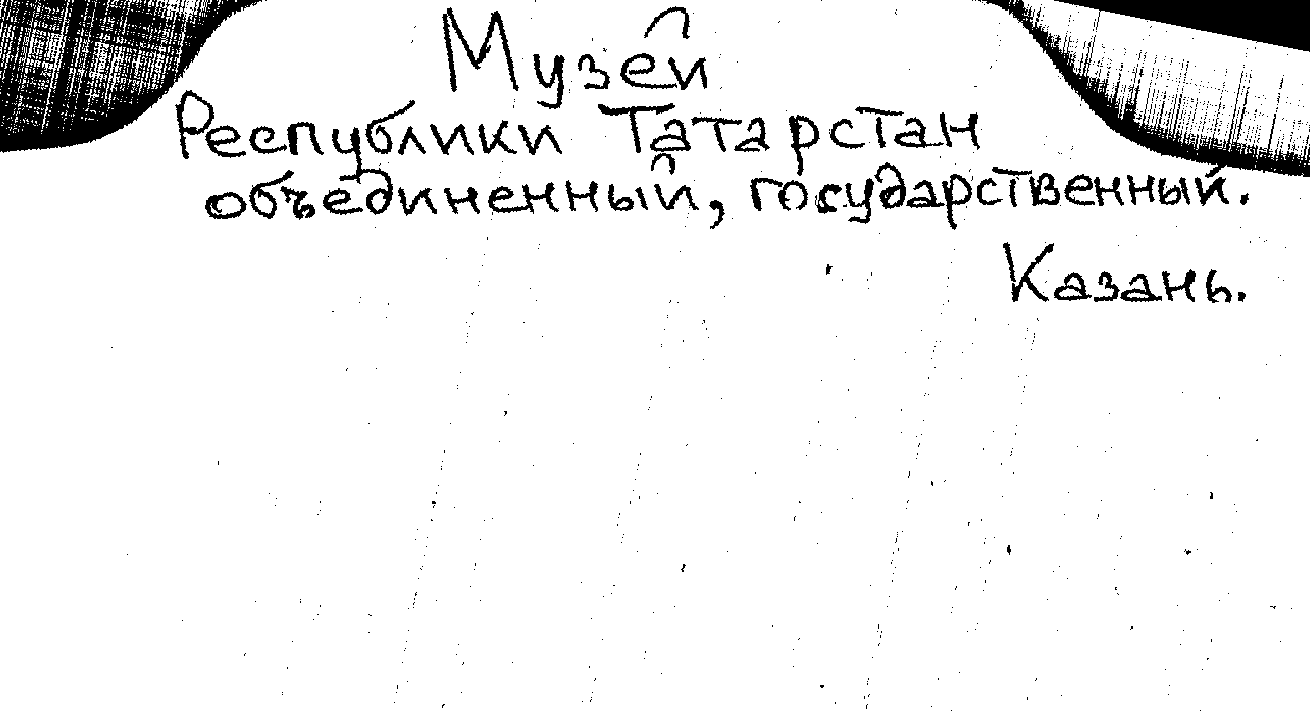 Музей
Республики Татарстан
объединенный, государственный.
Казань.